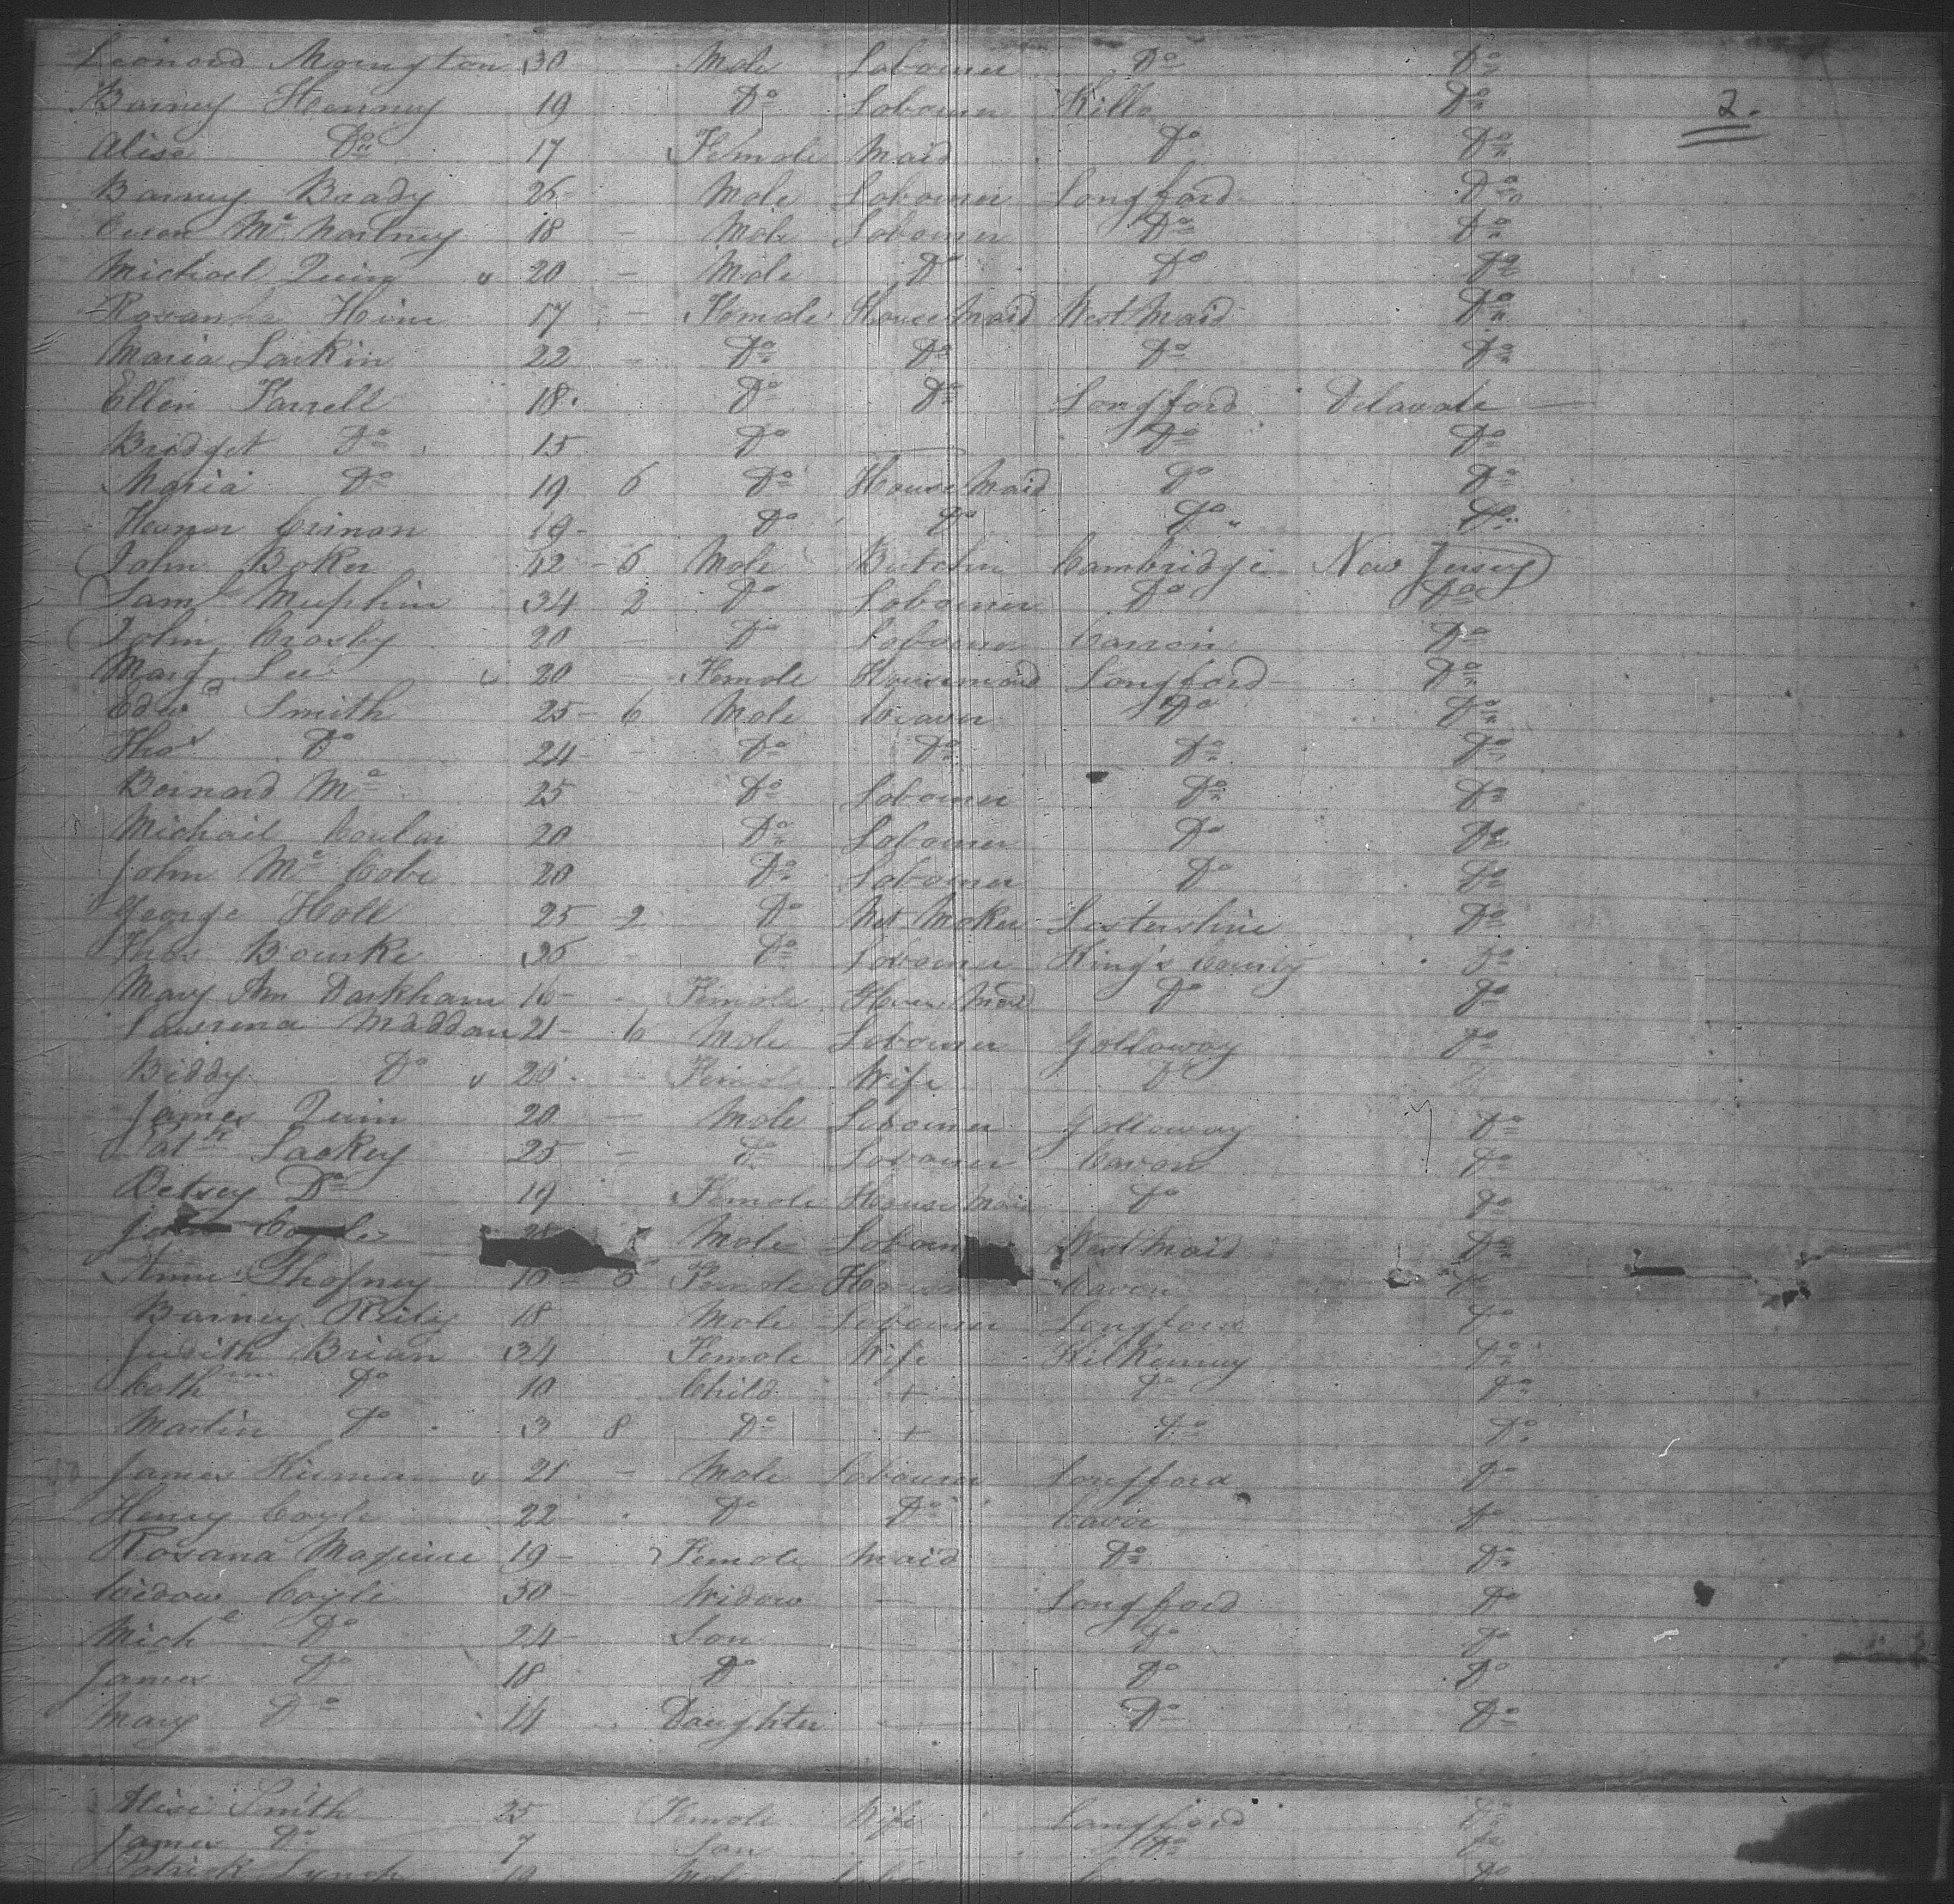 Leonard Morington 30 Male Labourer Do Do
Barney Henney 19 Do Labourer Kills Do
2.
Alise Do 17 Female Maid Do Do
Barney Brady 25 Male Labourer Longford Do
Owen Mc Nartney 18 - Male Labourer Do Do
Michael Quinn v 20 - Male Do Do Do
Rosanna 17 - Female House Maid West Maid Do
Maria Larkin 22 - Do Do Do Do
Ellen Farrell 18 Do Do Longford Delawate
Bridget Do 15 Do — Do Do
Maria Do 19 6 Do House Maid Do Do
Honor Crinon 19 - Do Do Do Do
John Baker 42 - 6 Male Butcher Cambridge New Jersey
Saml Muphin 34 2 Do Labourer Do Do
John Crosby 20 - Do Labourer Do
Mary Lee v 20 - Female Housemaid Longford Do
Edwd Smith 25 - 6 Male Weaver Do Do
Thos Do 24 - - Do Do Do Do
Bernard Mc 25 Do Labourer Do Do
Michail Conlan 20 Do Labourer Do Do
John Mc Cobe 20 Do Labourer Do Do
George Holl 25 2 Do Net Maker Lestershire Do
Thos Bourke 26 - Do Labourer King's County Do
Mary Ann Darkham 16 - Female House Maid Do Do
Lawrence Maddan 21 - 6 Male Labourer Gallaway Do
Biddy Do v 20 - Female Wife Do
James Quin 20 - Male Labourer Gallaway Do
Patk Lackey 25 - Do Labourer Cavan Do
Betsey Do 19 Female House Maid Do Do
John Coyle Male Labour West Maid Do
Anne 10 - 6 Female House Cavan
Barney Reily 18 Male Labourer Longford Do
Judith Brian 34 Female Wife Kilkenny Do
Cathrine Do 10 Child + Do Do
Martin Do 3 8 Do + Do Do
James Kiernan v 21 - Male Labourer Longford Do
Henry Coyle 22 Do Do Cavan Do
Rosana Maguire 19 - Female Maid Do Do
Widow Coyle 50 - Widow — Longford Do
Michl Do 24 Son Do Do
James Do 18 Do Do Do
Mary Do 14 Daughter — Do Do
Alise Smith 25 Female Wife Longford Do
James Do 7 Son Do Do
Patrick Lynch 19 Male Labour Cavan Do